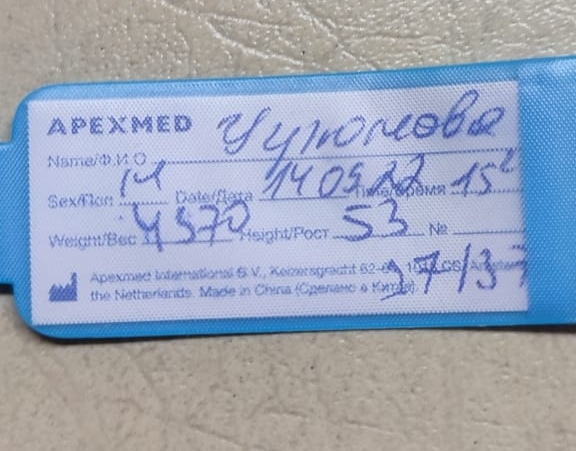 APEXMED
Name/Ф.И.О.
Sex/Пол М Date/Дата 14 09 22 Time/Время 15
Weight/Вес 4570 Height/Рост 53 №
37/37
Apexmed International B.V., Keizersgracht 62-64, 1015 CS, Amsterdam
the Netherlands. Made in China (Сделано в Китае).